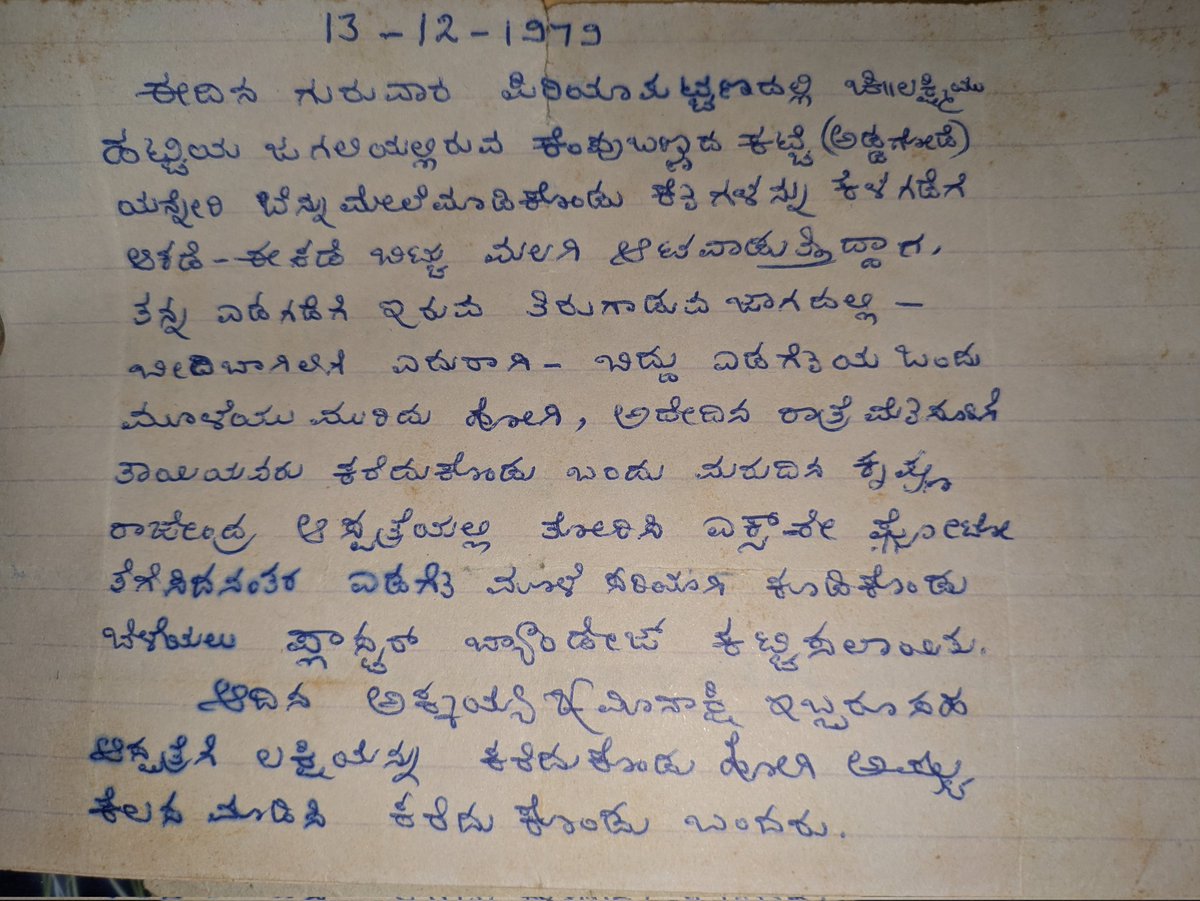 13-12-1979
ಈದಿನ ಗುರುವಾರ ಪಿರಿಯಾಪಟ್ಟಣದಲ್ಲಿ ಚಿ॥ಲಕ್ಷ್ಮಿಯು
ಹಟ್ಟಿಯ ಜಗಲಿಯಲ್ಲಿರುವ ಕೆಂಪುಬಣ್ಣದ ಕಟ್ಟೆ (ಅಡ್ಡಗೋಡೆ)
ಯನ್ನೇರಿ ಬೆನ್ನುಮೇಲೆಮಾಡಿಕೊಂಡು ಕೈಗಳನ್ನು ಕೆಳಗಡೆಗೆ
ಆಕಡೆ-ಈಕಡೆ ಬಿಟ್ಟು ಮಲಗಿ ಆಟವಾಡುತ್ತಿದ್ದಾಗ,
ತನ್ನ ಎಡಗಡೆಗೆ ಇರುವ ತಿರುಗಾಡುವ ಜಾಗದಲ್ಲಿ -
ಬೀದಿಬಾಗಿಲಿಗೆ ಎದುರಾಗಿ - ಬಿದ್ದು ಎಡಗೈಯ ಒಂದು
ಮೂಳೆಯು ಮುರಿದು ಹೋಗಿ, ಅದೇದಿನ ರಾತ್ರೆ ಮೈಸೂರಿಗೆ
ತಾಯಿಯವರು ಕರೆದುಕೊಂಡು ಬಂದು ಮರುದಿನ ಕೃಷ್ಣ
ರಾಜೇಂದ್ರ ಆಸ್ಪತ್ರೆಯಲ್ಲಿ ತೋರಿಸಿ ಎಕ್ಸ್‌ರೇ ಫೋಟೋ
ತೆಗೆಸಿದನಂತರ ಎಡಗೈ ಮೂಳೆ ಸರಿಯಾಗಿ ಕೂಡಿಕೊಂಡು
ಬೆಳೆಯಲು ಪ್ಲಾಸ್ಟರ್ ಬ್ಯಾಂಡೇಜ್ ಕಟ್ಟಿಸಲಾಯಿತು.
ಆದಿನ ಮೀನಾಕ್ಷಿ ಇಬ್ಬರೂಸಹ
ಆಸ್ಪತ್ರೆಗೆ ಲಕ್ಷ್ಮಿಯನ್ನು ಕರೆದುಕೊಂಡು ಹೋಗಿ ಅಷ್ಟು
ಕೆಲಸ ಮಾಡಿಸಿ ಕರೆದು ಕೊಂಡು ಬಂದರು.